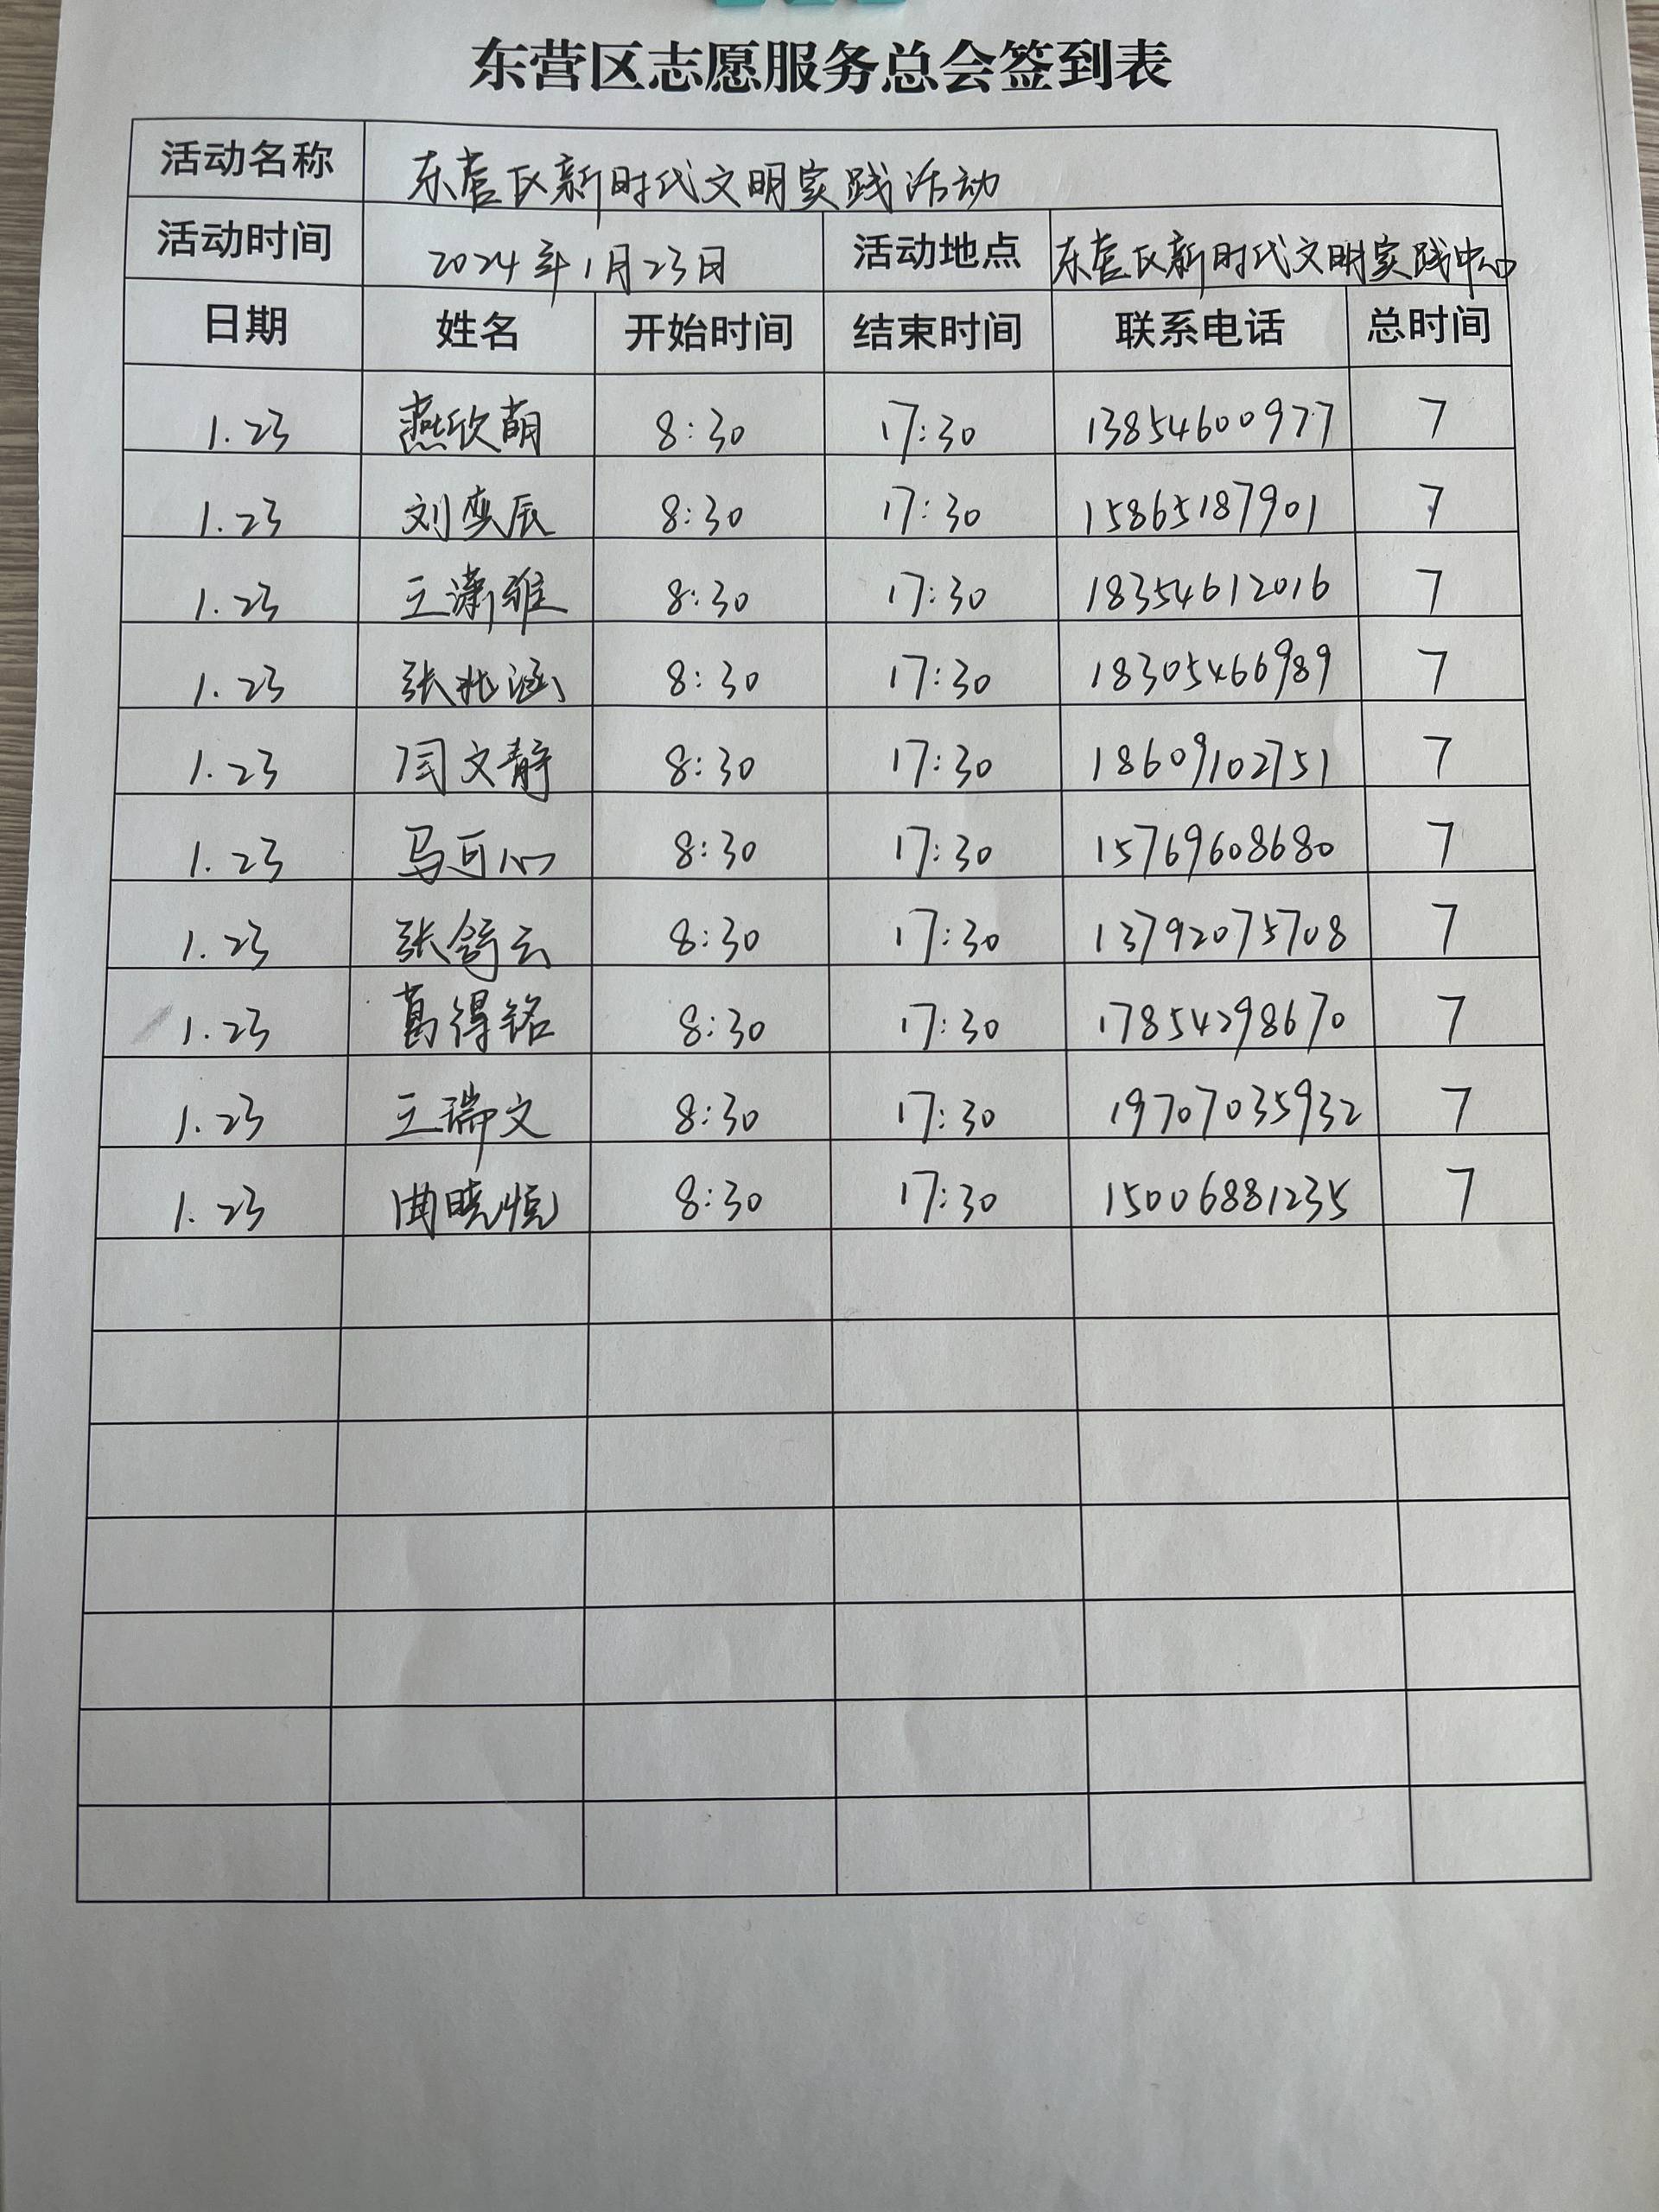 东营区志愿服务总会签到表
活动名称 东营区新时代文明实践活动
活动时间 2024年1月23日 活动地点 东营区新时代文明实践中心
日期 姓名 开始时间 结束时间 联系电话 总时间
1.23 燕欣萌 8:30 17:30 13854600977 7
1.23 刘奕辰 8:30 17:30 15865187901 7
1.23 王潇雅 8:30 17:30 18354612016 7
1.23 张兆涵 8:30 17:30 18305466989 7
1.23 闫文静 8:30 17:30 18609102751 7
1.23 马可心 8:30 17:30 15769608680 7
1.23 8:30 17:30 13792075708 7
1.23 葛得铭 8:30 17:30 17854298670 7
1.23 王瑞文 8:30 17:30 19707035932 7
1.23 曲晓悦 8:30 17:30 15006881235 7